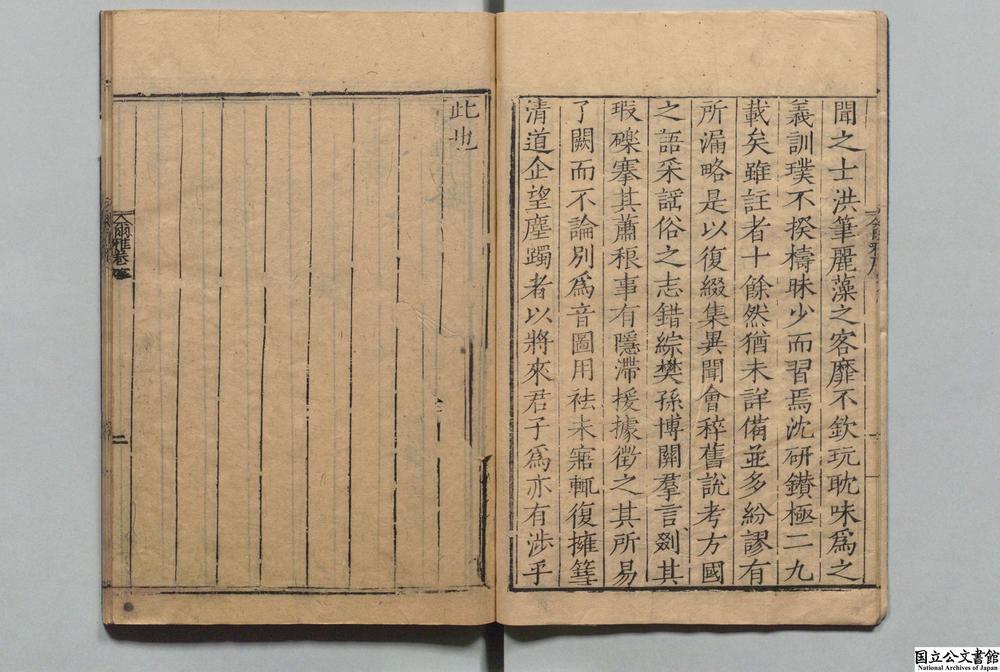 聞之士洪筆麗藻之客靡不欽玩耽味爲之
義訓璞不揆檮昧少而習焉沈研鑽極二九
載矣雖註者十餘然猶未詳備並多紛謬有
所漏略是以復綴集異聞會稡舊說考方國
之語采謡俗之志錯綜樊孫博關羣言剟其
瑕礫搴其蕭稂事有隱滯援據徵之其所易
了闕而不論別爲音圖用祛未寤輒復擁篲
清道企望塵躅者以將來君子爲亦有涉乎
此也
爾雅卷
二
国立公文書館
National Archives of Japan